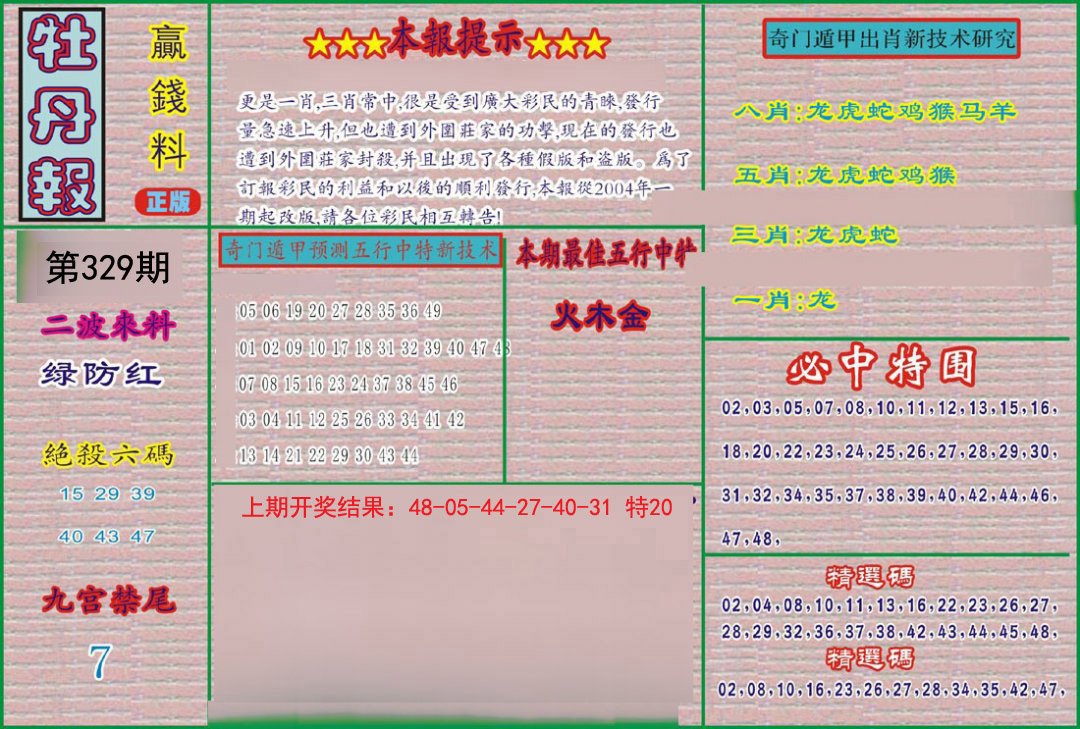 牡丹報
贏錢料
正版
第329期
二波來料
绿防红
絕殺六碼
15 29 39
40 43 47
九宫禁尾
7
★★★本報提示★★★
更是一肖,三肖常中,很是受到廣大彩民的青睞,發行
量急速上升,但也遭到外圍莊家的功擊,現在的發行也
遭到外圍莊家封殺,并且出現了各種假版和盗版。爲了
訂報彩民的利益和以後的順利發行,本報從2004年一
期起改版,請各位彩民相互轉告!
奇门遁甲预测五行中特新技术
05 06 19 20 27 28 35 36 49
01 02 09 10 17 18 31 32 39 40 47 48
07 08 15 16 23 24 37 38 45 46
03 04 11 12 25 26 33 34 41 42
13 14 21 22 29 30 43 44
本期最佳五行中特
火木金
上期开奖结果：48-05-44-27-40-31 特20
奇门遁甲出肖新技术研究
八肖:龙虎蛇鸡猴马羊
五肖:龙虎蛇鸡猴
三肖:龙虎蛇
一肖:龙
必中特围
02,03,05,07,08,10,11,12,13,15,16,
18,20,22,23,24,25,26,27,28,29,30,
31,32,34,35,37,38,39,40,42,44,46,
47,48,
精選碼
02,04,08,10,11,13,16,22,23,26,27,
28,29,32,36,37,38,42,43,44,45,48,
精選碼
02,08,10,16,23,26,27,28,34,35,42,47,